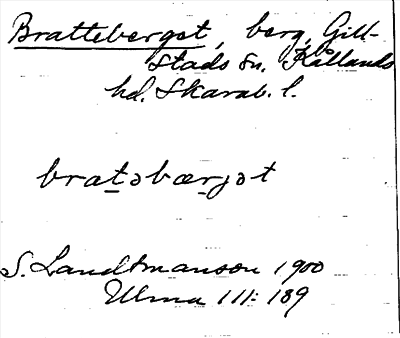 Bratteberget, berg, Gill-
stads sn. Kållands
hd. Skarab. l.
bratəbærjət
S. Landtmanson 1900
Ulma 111:189